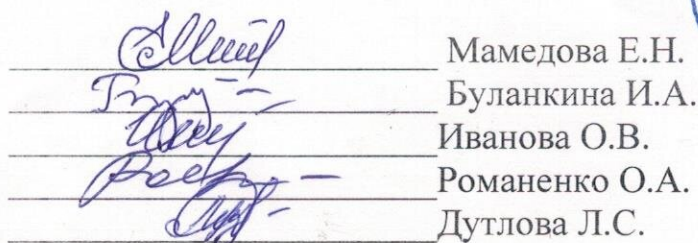 Мамедова Е.Н.
Буланкина И.А.
Иванова О.В.
Романенко О.А.
Дутлова Л.С.